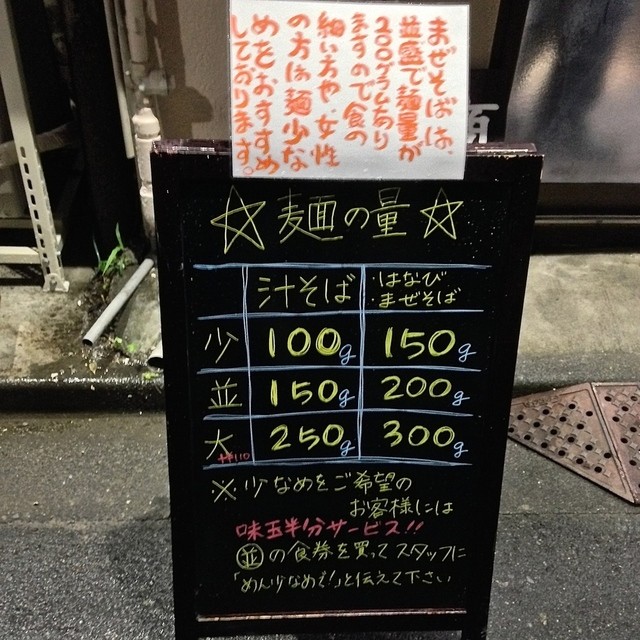 まぜそばは、
並盛で麺量が
200グラムあり
ますので食の
細い方や女性
の方は麺少な
めをおすすめ
しております。
☆麺の量☆
汁そば ・はなび ・まぜそば
少 100g 150g
並 150g 200g
大 +¥110 250g 300g
※少なめをご希望の
お客様には
味玉半分サービス!!
並の食券を買ってスタッフに
「めん少なめで!」と伝えて下さい